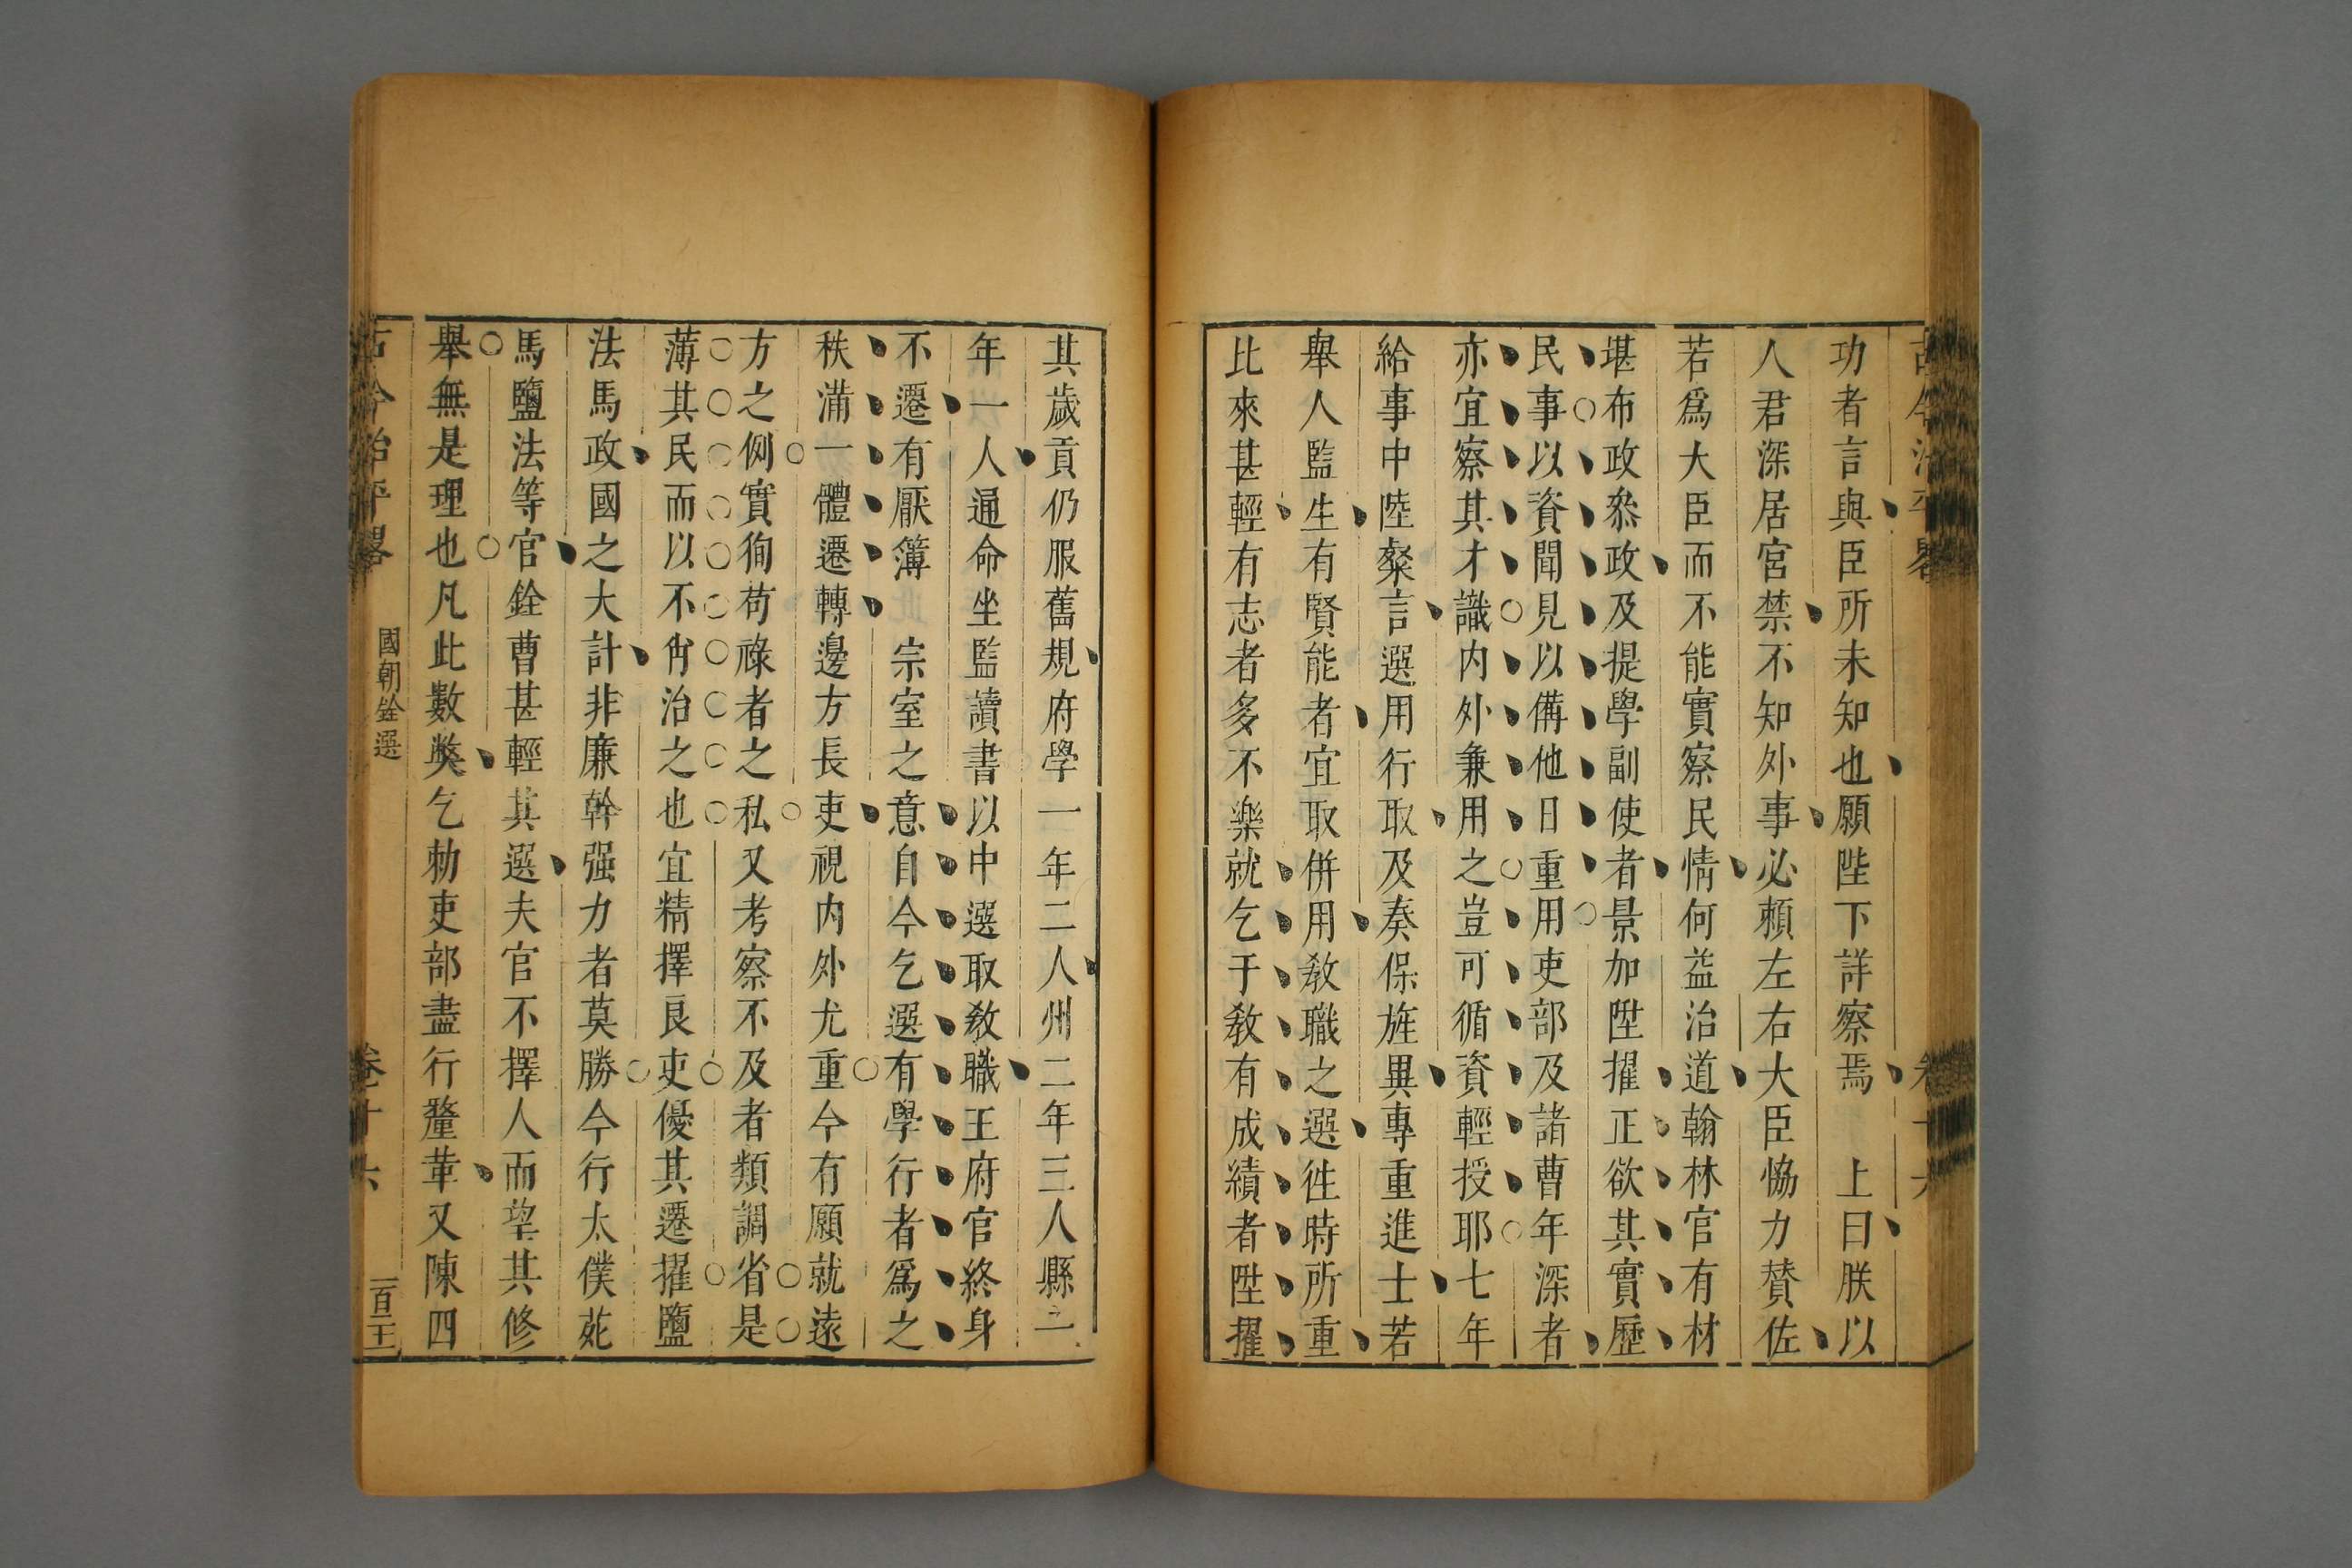 功者言與臣所未知也願陛下詳察焉　上曰朕以
人君深居宮禁不知外事必頼左右大臣恊力賛佐
若爲大臣而不能實察民情何益治道翰林官有材
堪布政叅政及提學副使者景加陞擢正欲其實歷
民事以資聞見以備他日重用吏部及諸曹年深者
亦宜察其才識内外兼用之豈可循資輕授耶七年
給事中陸粲言選用行取及奏保旌異專重進士若
舉人監生有賢能者宜取併用敎職之選徃時所重
比來甚輕有志者多不樂就乞于敎有成績者陞擢
其歲貢仍服舊規府學一年二人州二年三人縣二
年一人通命坐監讀書以中選取敎職王府官終身
不遷有厭簿　宗室之意自今乞選有學行者爲之
秩滿一體遷轉邊方長吏視内外尤重今有願就遠
方之例實徇苟祿者之私又考察不及者類調省是
薄其民而以不肖治之也宜精擇良吏優其遷擢鹽
法馬政國之大計非廉幹强力者莫勝今行太僕苑
馬鹽法等官銓曹甚輕其選夫官不擇人而望其修
舉無是理也凡此數獘乞勑吏部盡行釐革又陳四
古今治平畧
國朝銓選
卷十六